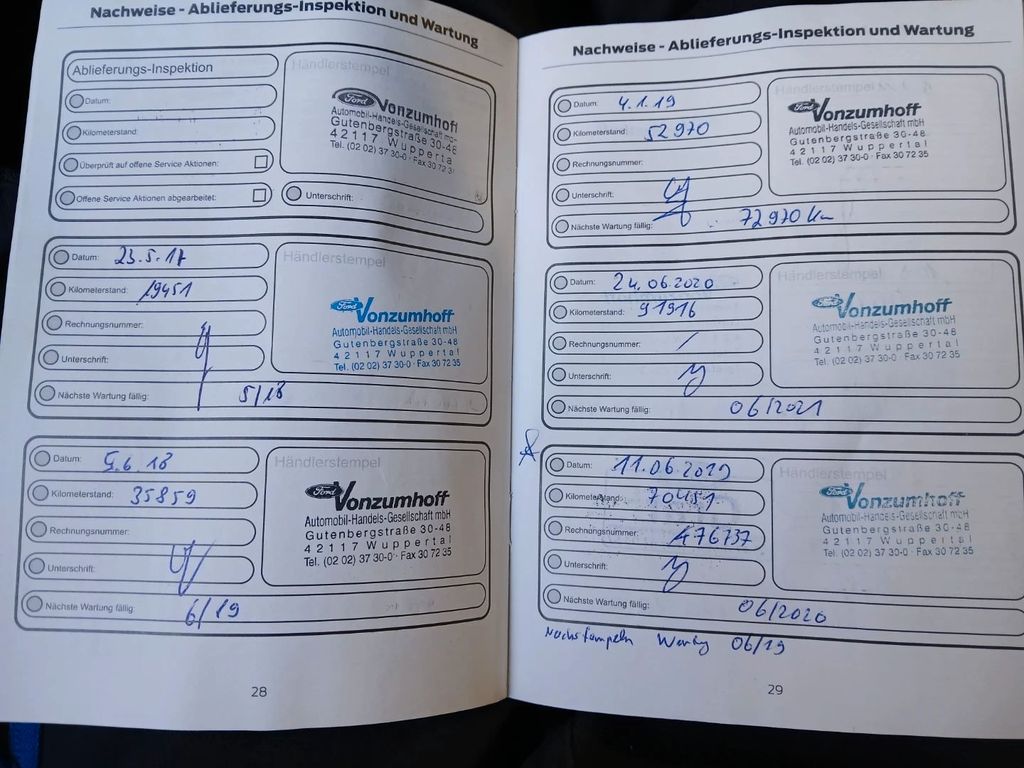 Nachweise - Ablieferungs-Inspektion und Wartung
Ablieferungs-Inspektion
Datum:
Kilometerstand:
Überprüft auf offene Service Aktionen:
Offene Service Aktionen abgearbeitet:
Händlerstempel
Ford Vonzumhoff
Automobil-Handels-Gesellschaft mbH
Gutenbergstraße 30-48
42117 Wuppertal
Tel. (02 02) 37 30-0 · Fax 30 72 35
Unterschrift:
Datum: 23.5.17
Kilometerstand: 19451
Rechnungsnummer:
Unterschrift:
Nächste Wartung fällig: 5/18
Händlerstempel
Ford Vonzumhoff
Automobil-Handels-Gesellschaft mbH
Gutenbergstraße 30-48
42117 Wuppertal
Tel. (02 02) 37 30-0 · Fax 30 72 35
Datum: 5.6.18
Kilometerstand: 35859
Rechnungsnummer:
Unterschrift:
Nächste Wartung fällig: 6/19
Händlerstempel
Ford Vonzumhoff
Automobil-Handels-Gesellschaft mbH
Gutenbergstraße 30-48
42117 Wuppertal
Tel. (02 02) 37 30-0 · Fax 30 72 35
28
Nachweise - Ablieferungs-Inspektion und Wartung
Datum: 4.1.19
Kilometerstand: 52970
Rechnungsnummer:
Unterschrift:
Nächste Wartung fällig: 72970 Km
Händlerstempel
Ford Vonzumhoff
Automobil-Handels-Gesellschaft mbH
Gutenbergstraße 30-48
42117 Wuppertal
Tel. (02 02) 37 30-0 · Fax 30 72 35
Datum: 24.06.2020
Kilometerstand: 91916
Rechnungsnummer: /
Unterschrift:
Nächste Wartung fällig: 06/2021
Händlerstempel
Ford Vonzumhoff
Automobil-Handels-Gesellschaft mbH
Gutenbergstraße 30-48
42117 Wuppertal
Tel. (02 02) 37 30-0 · Fax 30 72 35
Datum: 11.06.2019
Kilometerstand: 70451
Rechnungsnummer: 476737
Unterschrift:
Nächste Wartung fällig: 06/2020
Händlerstempel
Ford Vonzumhoff
Automobil-Handels-Gesellschaft mbH
Gutenbergstraße 30-48
42117 Wuppertal
Tel. (02 02) 37 30-0 · Fax 30 72 35
Nachstempeln Wartung 06/19
29